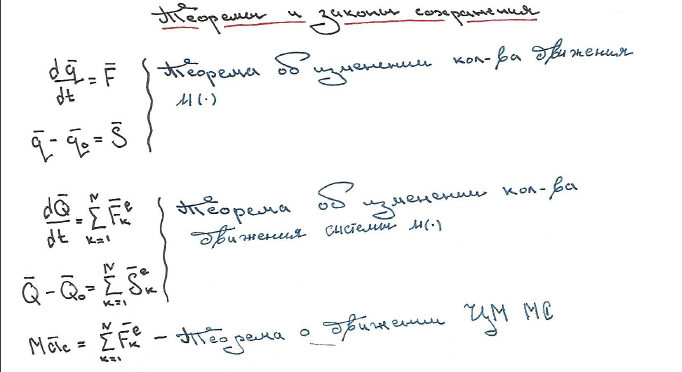 Теоремы и законы сохранения
dq̄/dt = F̄ } Теорема об изменении кол-ва движения
м(·)
q̄ - q̄₀ = S̄
dQ̄/dt = ∑_{k=1}^{N} F̄ₖᵉ } Теорема об изменении кол-ва
движения системы м(·)
Q̄ - Q̄₀ = ∑_{k=1}^{N} S̄ₖᵉ
Mā_c = ∑_{k=1}^{N} F̄ₖᵉ – Теорема о движении ЦМ МС